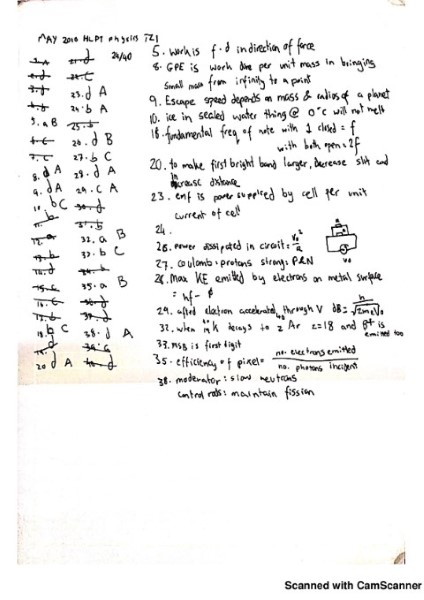 MAY 2010 HLP1 physics TZ1
24/40
5. aB
8. d A
9. d A
10. b C
18. b C
20 d A
23. d A
24. b A
26. d B
27. b C
28. d A
29. c A
32. a B
33. b C
35. a B
38. d A
5. work is f·d in direction of force
8. GPE is work done per unit mass in bringing
small mass from infinity to a point
9. Escape speed depends on mass & radius of a planet
10. ice in sealed water thing @ 0°C will not melt
18. fundamental freq of note with 1 closed = f
with both open = 2f
20. to make first bright band larger, decrease slit and
increase distance
23. emf is power supplied by cell per unit
current of cell
24.
26. power dissipated in circuit =
27. coulomb: protons strong: P&N
28. Max KE emitted by electrons on metal surface
= hf - φ
29. after electron accelerated through V
32. when K decays to Ar z=18 and β+ is
emitted too
33. MSB is first digit
35. efficiency of pixel = no. electrons emitted
no. photons incident
38. moderator: slow neutrons
control rods: maintain fission
Scanned with CamScanner